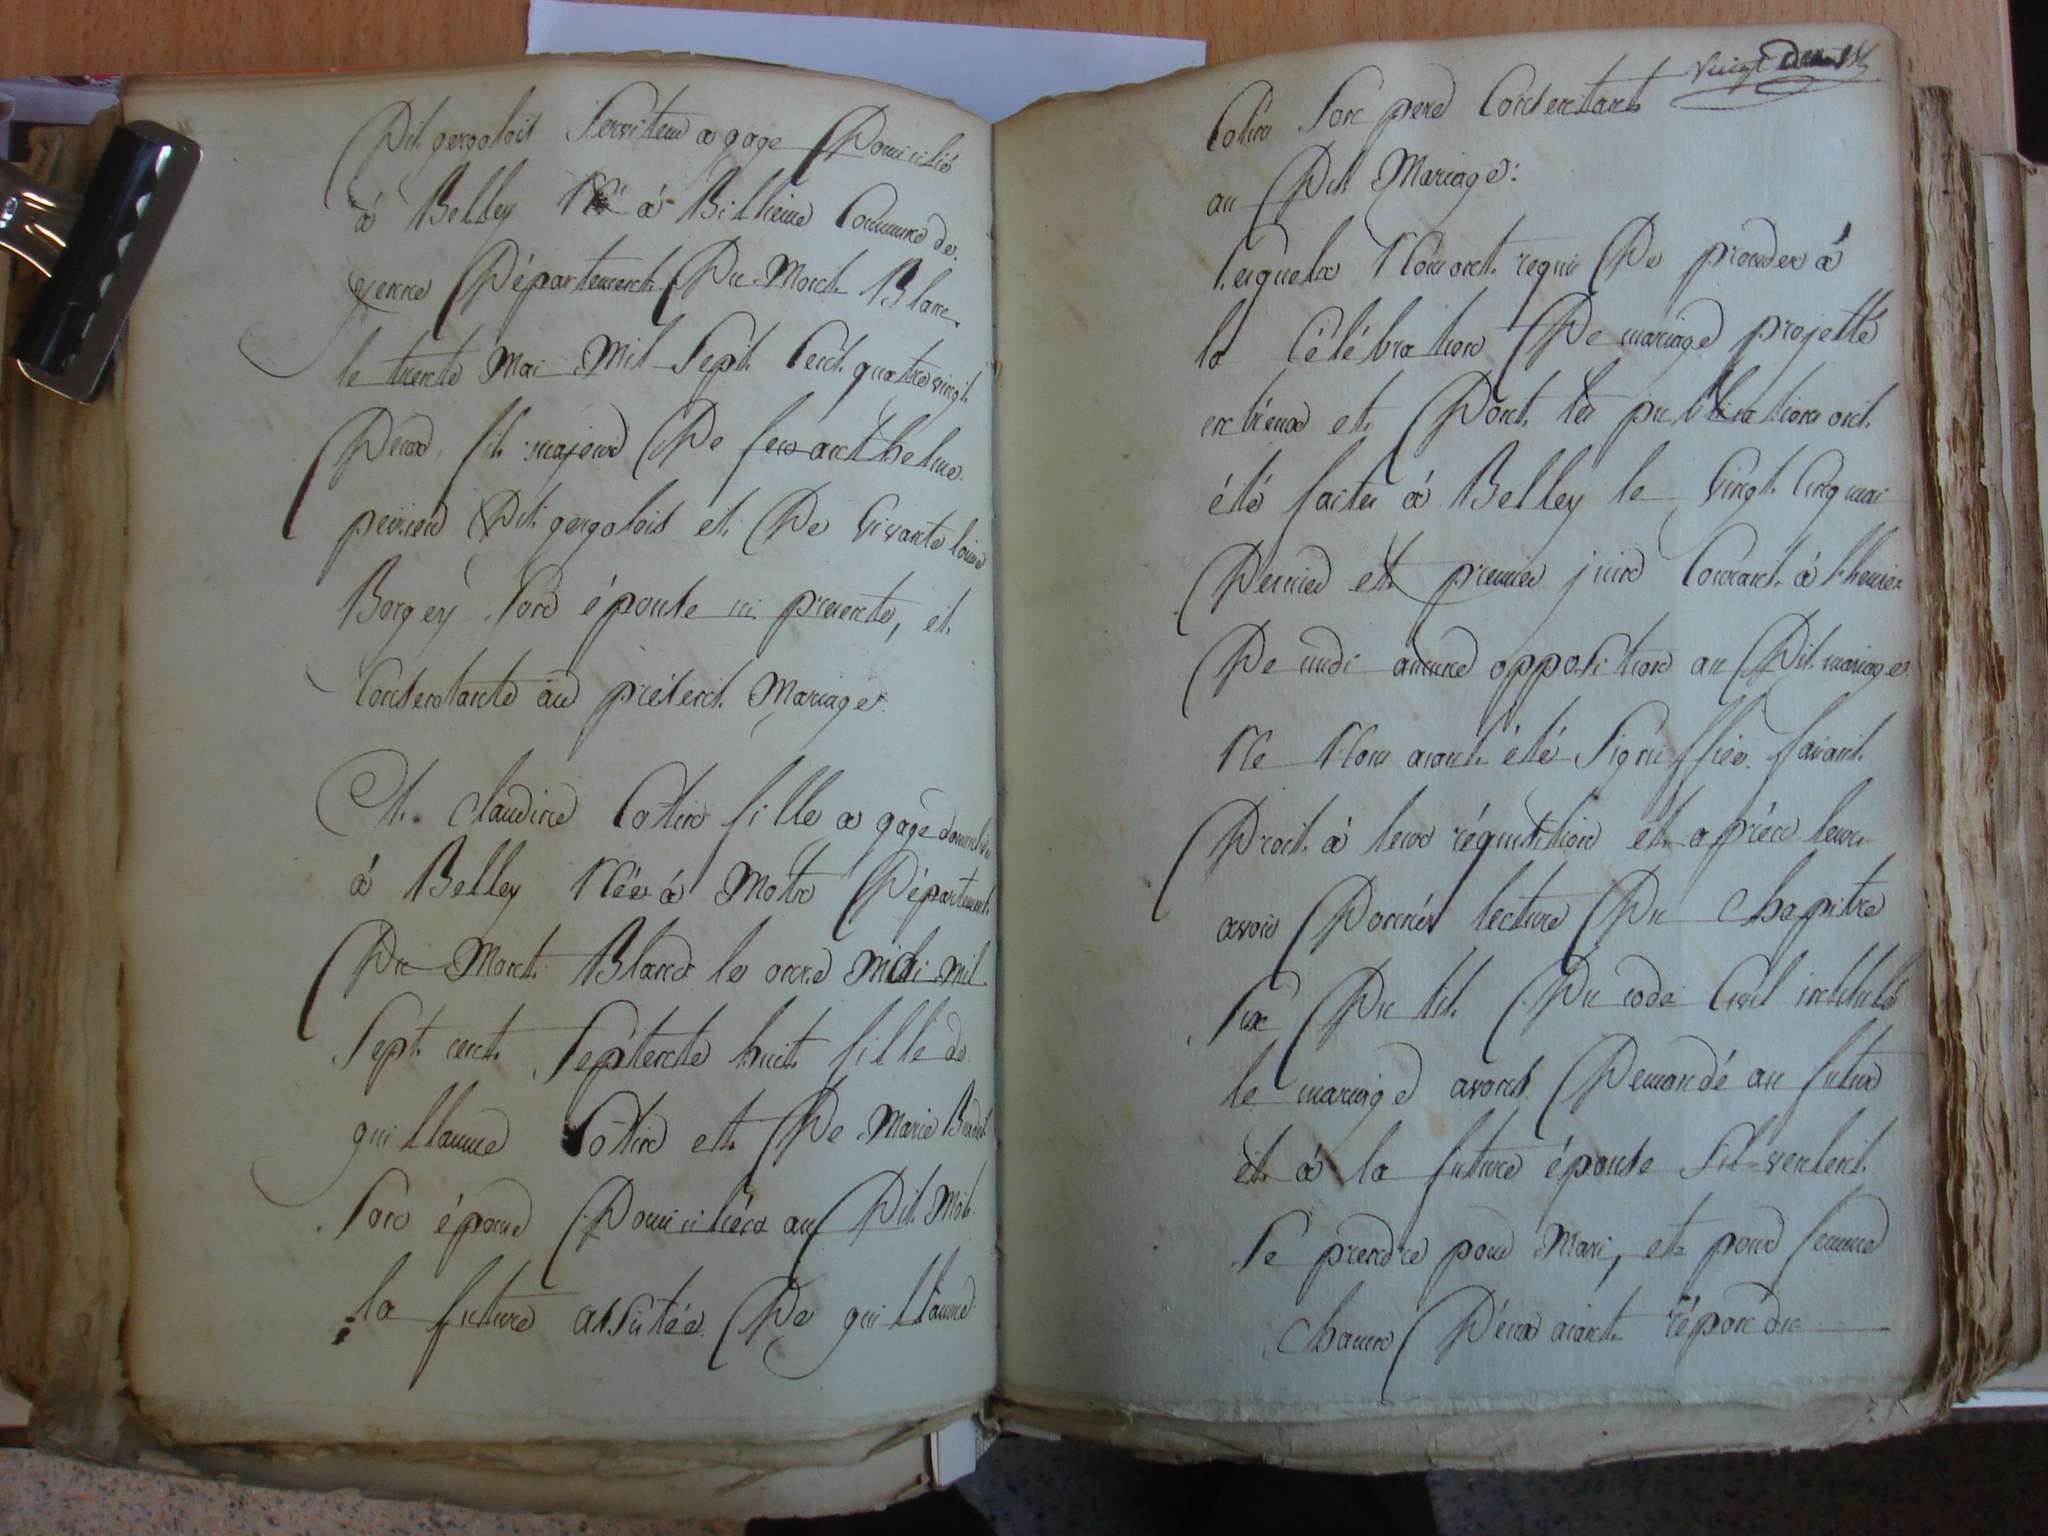 Dit gergolois Serviteur a gage Domicilié
à Belley Né à Billieme Commune de
yenne Département Du Mont Blanc
le trente Mai Mil Sept Cent quatre vingt
Deux, fils majeur De feu anthelme
perrier Dit gergolois et De vivante louise
Borgey Son épouse ici présente, et
Consentante au présent Mariage
Et Claudine Cottin fille a gage domiciliée
à Belley Née à Motz Département
Du Mont Blanc le onze Mai Mil
Sept cent Septente huit fille de
guillaume Cottin et De Marie
Son épouse Domiciliés au Dit Motz
la future assistée De guillaume
vingt Deux
Cotin Son pere Consentant
au Dit Mariage:
Lesquels Nous ont requis De proceder à
la Célébration De mariage projetté
entreux et Dont les publications ont
été faites à Belley le vingt Cinq mai
Dernier et premier juin Courant à lheure
De midi aucune opposition au Dit mariage
Ne Nous aiant été Signiffiée faisant
Droit à leur réquisition et après leurs
avoir Donnés lecture Du Chapitre
Six Du tit. Du code Civil intitulé
le mariage avons Demandé au futur
et à la future épouse S'il veulent
Se prendre pour Mari, et pour femme
Chacun D'eux aiant répondu